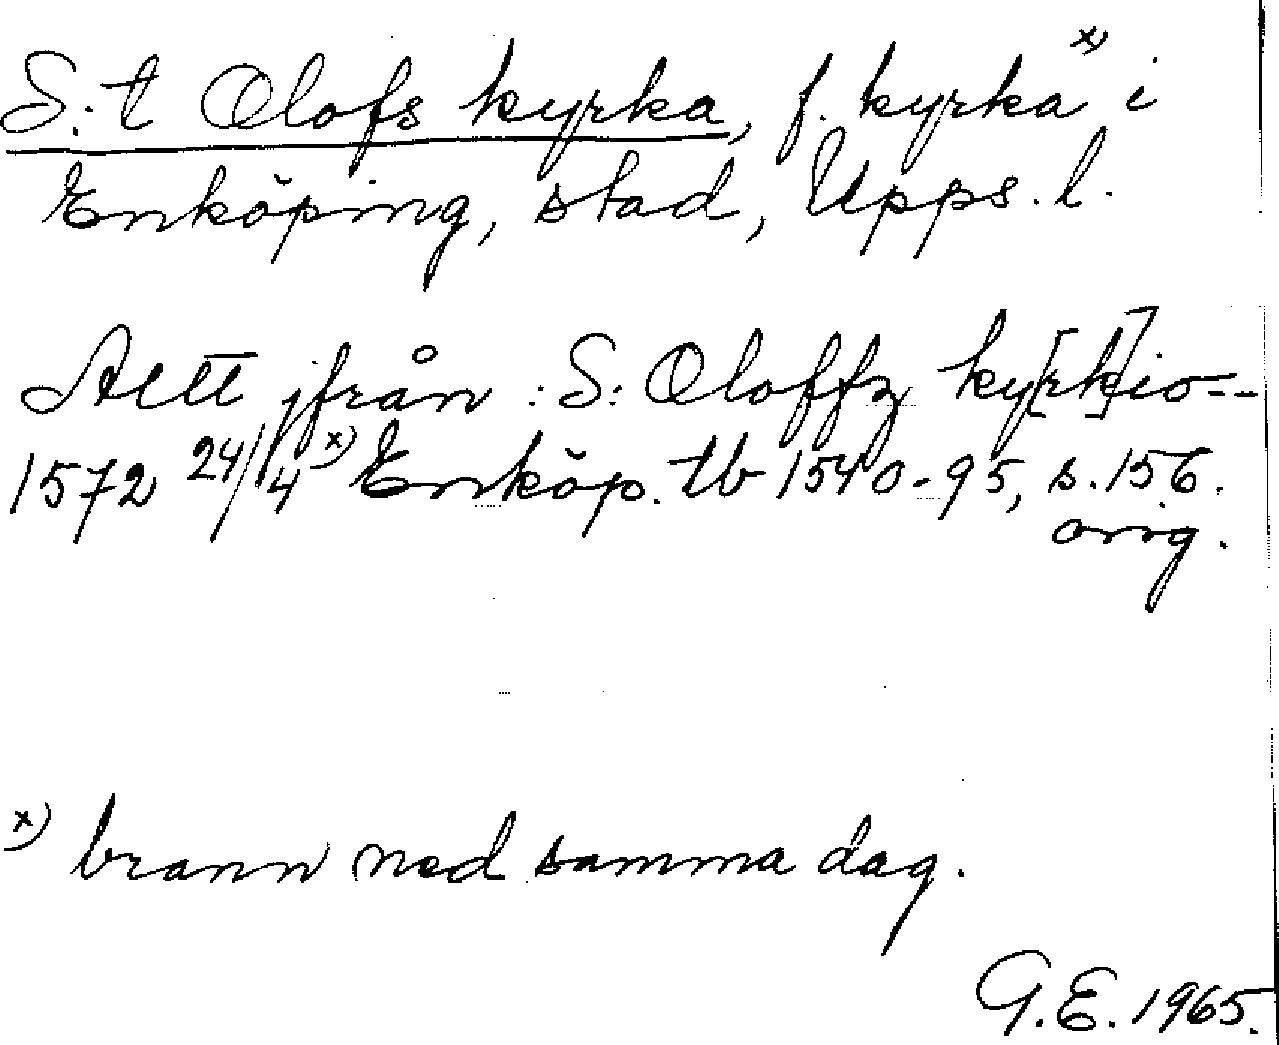 S:t Olofs kyrka, f. kyrka x) i
Enköping, stad, Upps. l.
Altt jfrån :S: Oloffz ky[rk]io--
1572 24/4 x) Enköp. tb 1540-95, s. 156.
orig.
x) brann ned samma dag.
G.E. 1965.